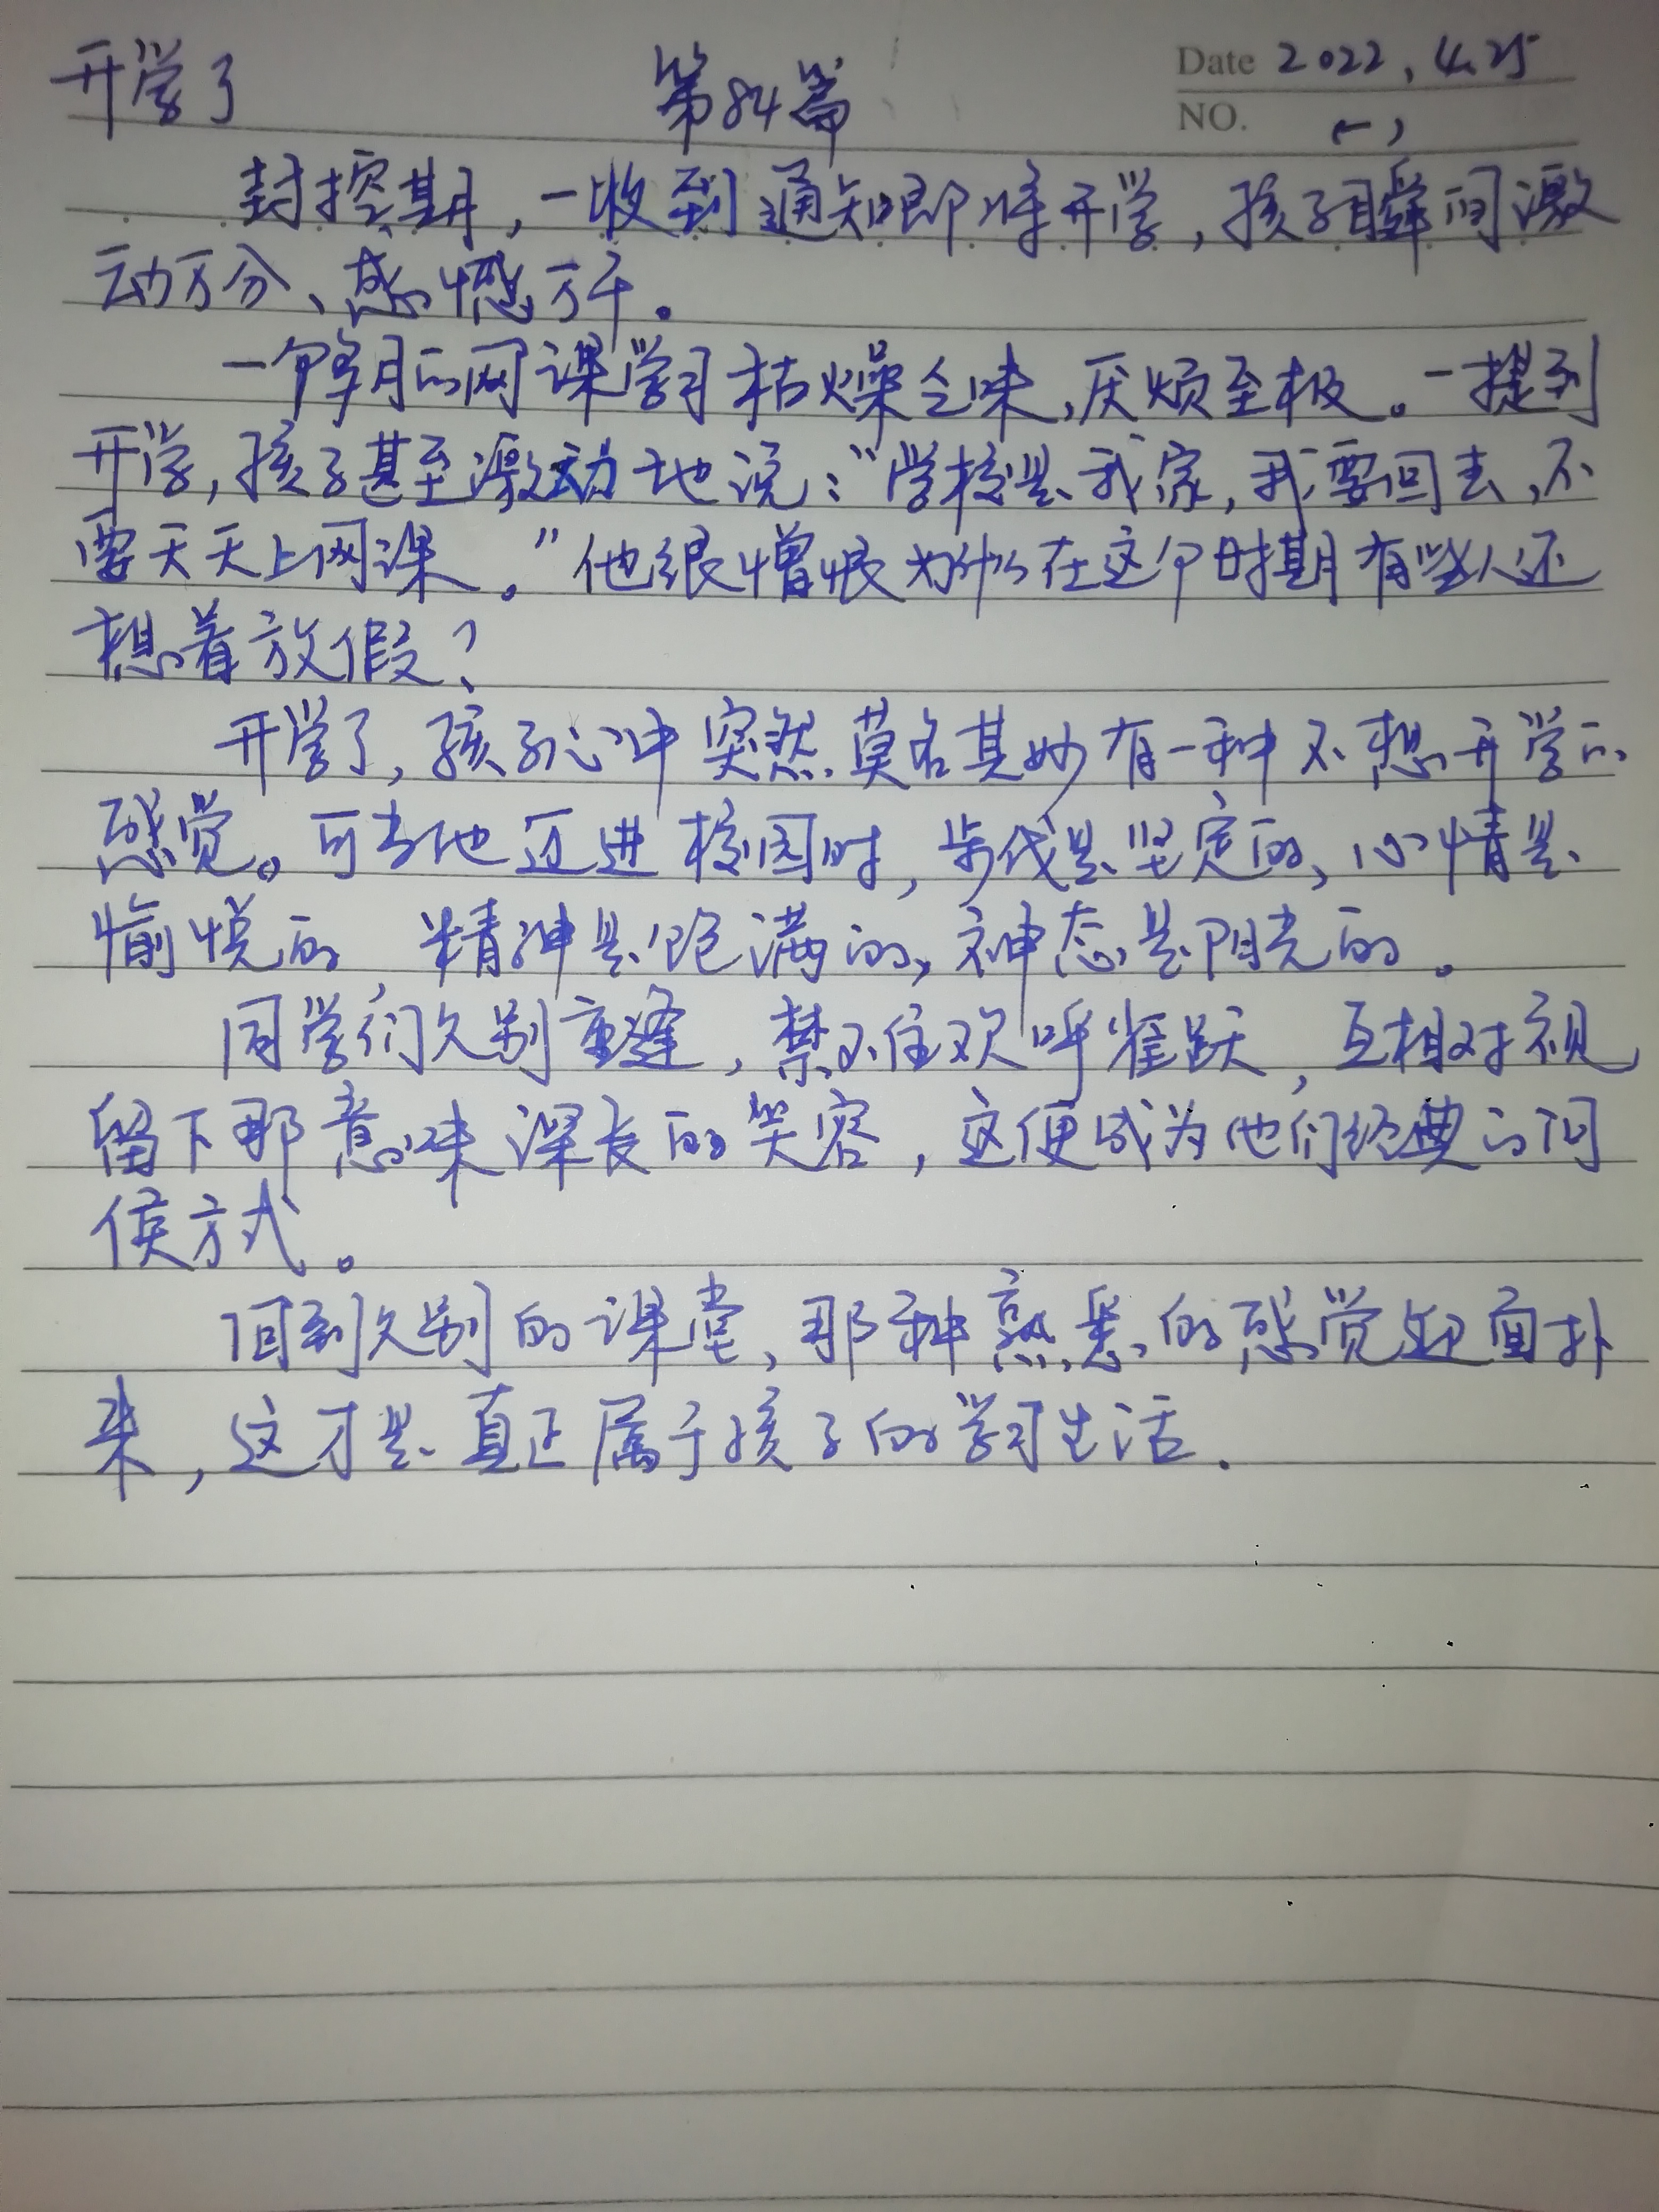 开学了 第84篇 Date 2022.4.25
NO. (一)
封控期,一收到通知即将开学,孩子瞬间激
动万分、感慨万千。
一个多月的网课学习枯燥乏味,厌烦至极。一提到
开学,孩子甚至激动地说:“学校是我家,我要回去,不
要天天上网课。”他很憎恨为什么在这个时期有些人还
想着放假?
开学了,孩子心中突然莫名其妙有一种不想开学的
感觉。可当他迈进校园时,步伐是坚定的、心情是
愉悦的、精神是饱满的,神态是阳光的。
同学们久别重逢,禁不住欢呼雀跃,互相对视
留下那意味深长的笑容,这便成为他们经典的问
候方式。
回到久别的课堂,那种熟悉的感觉迎面扑
来,这才是真正属于孩子的学习生活.